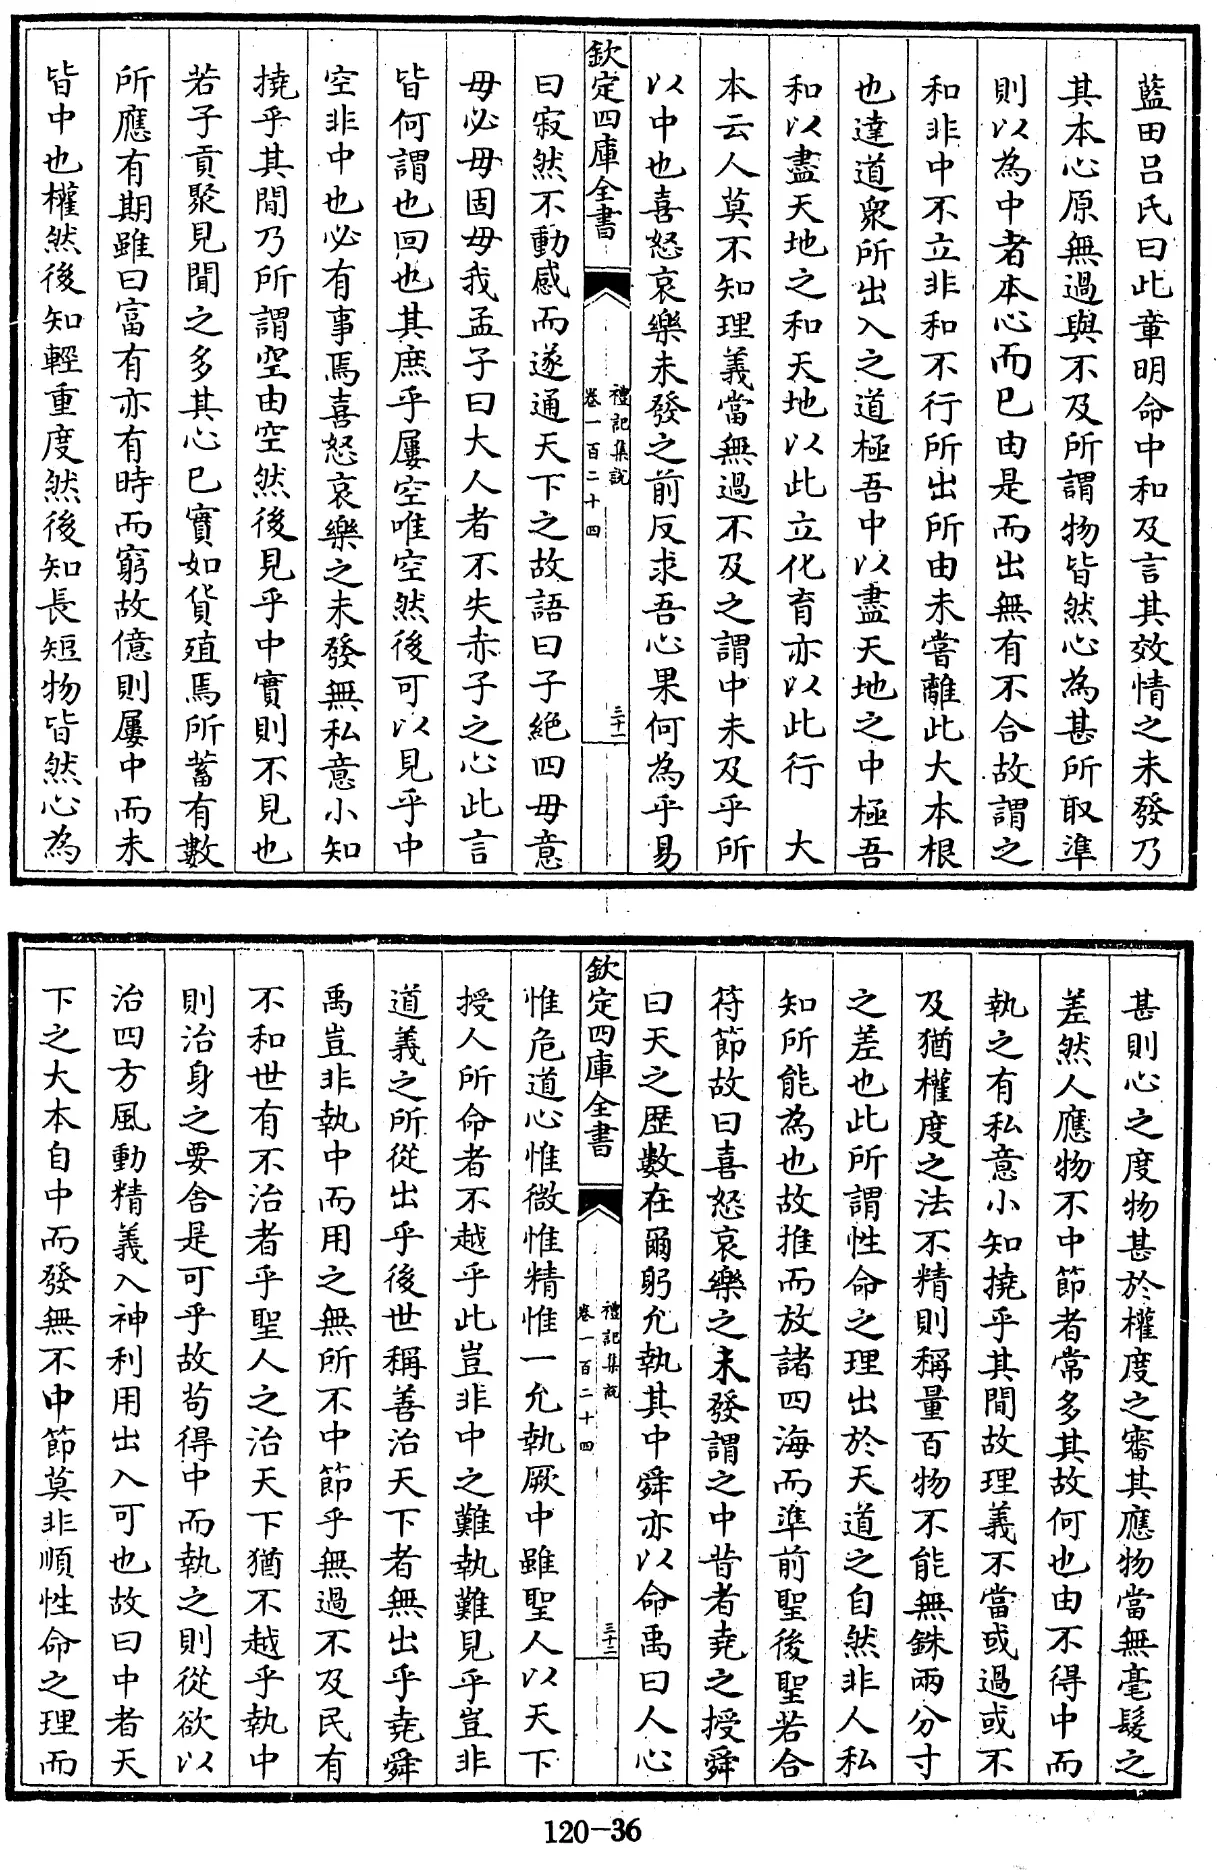 藍田呂氏曰此章明命中和及言其效情之未發乃
其本心原無過與不及所謂物皆然心為甚所取準
則以為中者本心而已由是而出無有不合故謂之
和非中不立非和不行所出所由未嘗離此大本根
也達道衆所出入之道極吾中以盡天地之中極吾
和以盡天地之和天地以此立化育亦以此行　大
本云人莫不知理義當無過不及之謂中未及乎所
以中也喜怒哀樂未發之前反求吾心果何為乎易
欽定四庫全書
禮記集說
卷一百二十四
三十一
曰寂然不動感而遂通天下之故語曰子絕四毋意
毋必毋固毋我孟子曰大人者不失赤子之心此言
皆何謂也回也其庶乎屢空唯空然後可以見乎中
空非中也必有事焉喜怒哀樂之未發無私意小知
撓乎其間乃所謂空由空然後見乎中實則不見也
若子貢聚見聞之多其心已實如貨殖焉所蓄有數
所應有期雖曰富有亦有時而窮故億則屢中而未
皆中也權然後知輕重度然後知長短物皆然心為
甚則心之度物甚於權度之審其應物當無毫髮之
差然人應物不中節者常多其故何也由不得中而
執之有私意小知撓乎其間故理義不當或過或不
及猶權度之法不精則稱量百物不能無銖兩分寸
之差也此所謂性命之理出於天道之自然非人私
知所能為也故推而放諸四海而準前聖後聖若合
符節故曰喜怒哀樂之未發謂之中昔者堯之授舜
曰天之歷數在爾躬允執其中舜亦以命禹曰人心
欽定四庫全書
禮記集說
卷一百二十四
三十二
惟危道心惟微惟精惟一允執厥中雖聖人以天下
授人所命者不越乎此豈非中之難執難見乎豈非
道義之所從出乎後世稱善治天下者無出乎堯舜
禹豈非執中而用之無所不中節乎無過不及民有
不和世有不治者乎聖人之治天下猶不越乎執中
則治身之要舍是可乎故苟得中而執之則從欲以
治四方風動精義入神利用出入可也故曰中者天
下之大本自中而發無不中節莫非順性命之理而
120-36